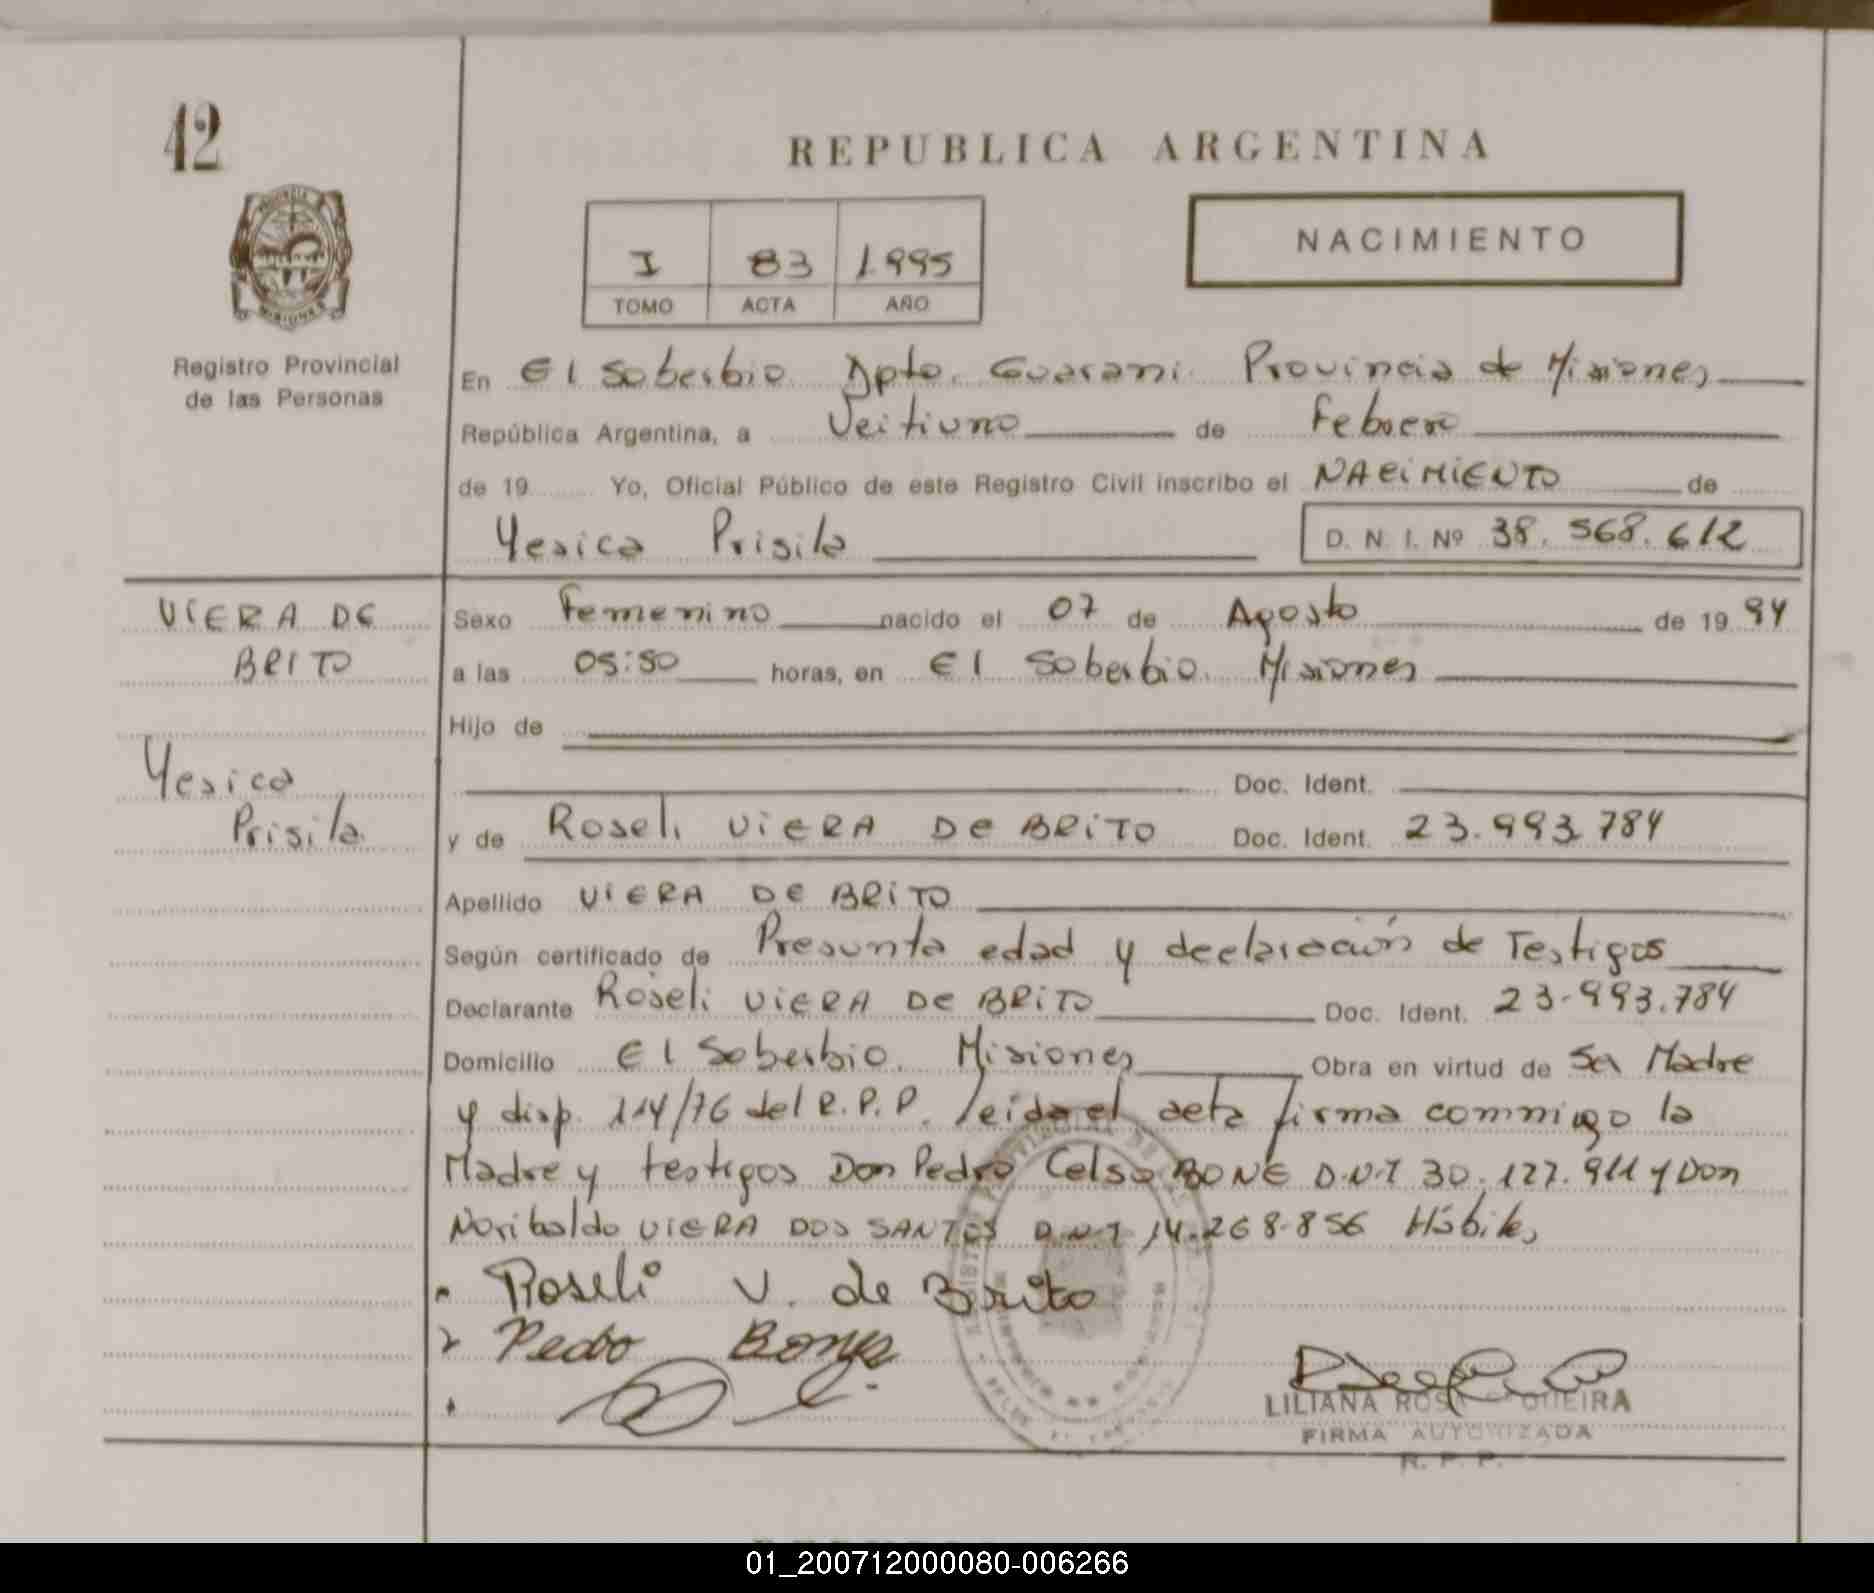 42
REPUBLICA ARGENTINA
NACIMIENTO
I 83 1995
TOMO ACTA AÑO
Registro Provincial
de las Personas
En El Soberbio Dpto. Guarani Provincia de Misiones
República Argentina, a Veitiuno de Febrero
de 19 Yo, Oficial Público de este Registro Civil inscribo el NACIMIENTO de
Yesica Prisila D. N. I. Nº 38.568.612
VIERA DE
BRITO
Yesica
Prisila
Sexo Femenino nacido el 07 de Agosto de 19 94
a las 05:50 horas, en El Soberbio. Misiones
Hijo de
Doc. Ident.
y de Roseli VIERA DE BRITO Doc. Ident. 23.993.784
Apellido VIERA DE BRITO
Según certificado de Presunta edad y declaración de Testigos
Declarante Roseli VIERA DE BRITO Doc. Ident. 23.993.784
Domicilio El Soberbio. Misiones Obra en virtud de Ser Madre
y disp. 114/76 del R.P.P. leida el acta firma commigo la
Madre y testigos Don Pedro Celso BONE D.N.I 30.127.911 y Don
Noribaldo VIERA DOS SANTOS D.N.I 14.268.856 Hábiles
Roseli V. de Brito
Pedro
LILIANA ROSA
FIRMA AUTORIZADA
R. P. P.
01_200712000080-006266